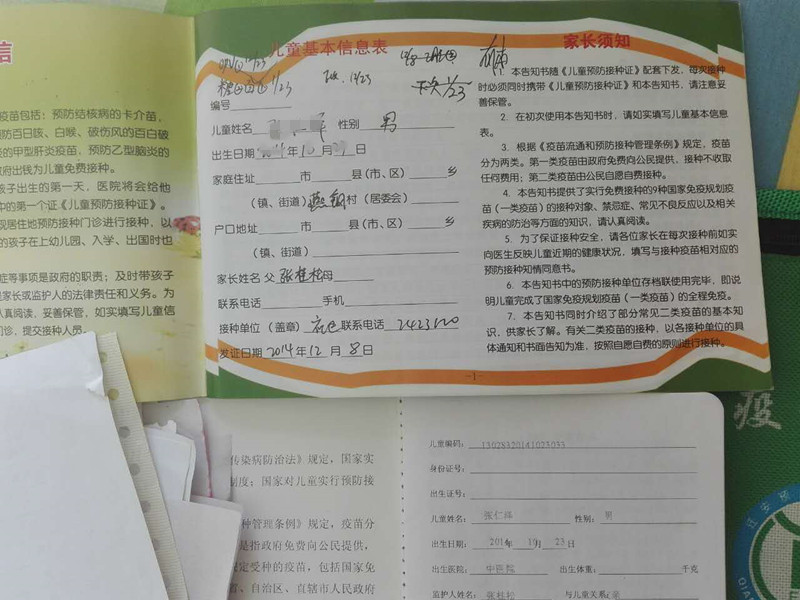 信
疫苗包括：预防结核病的卡介苗，
防百日咳、白喉、破伤风的百白破
的甲型肝炎疫苗，预防乙型脑炎的
府出钱为儿童免费接种。
孩子出生的第一天，医院将会给他
中的第一个证《儿童预防接种证》。
现居住地预防接种门诊进行接种，以
的孩子在上幼儿园、入学、出国时也
症等事项是政府的职责；及时带孩子
是家长或监护人的法律责任和义务。为
认真阅读，妥善保管，如实填写儿童信
门诊，提交接种人员。
儿童基本信息表
编号
儿童姓名 性别 男
出生日期 年10月 日
家庭住址 市 县（市、区） 乡
（镇、街道） 村（居委会）
户口地址 市 县（市、区） 乡
（镇、街道）
家长姓名 父 张桂松 母
联系电话 手机
接种单位（盖章） 联系电话
发证日期 2014年12月8日
家长须知
1. 本告知书随《儿童预防接种证》配套下发，每次接种
时必须同时携带《儿童预防接种证》和本告知书，请注意妥
善保管。
2. 在初次使用本告知书时，请如实填写儿童基本信息
表。
3. 根据《疫苗流通和预防接种管理条例》规定，疫苗
分为两类。第一类疫苗由政府免费向公民提供，接种不收取
任何费用；第二类疫苗由公民自愿自费接种。
4. 本告知书提供了实行免费接种的9种国家免疫规划疫
苗（一类疫苗）的接种对象、禁忌症、常见不良反应以及相关
疾病的防治等方面的知识，请认真阅读。
5. 为了保证接种安全，请各位家长在每次接种前如实
向医生反映儿童近期的健康状况，填写与接种疫苗相对应的
预防接种知情同意书。
6. 本告知书中的预防接种单位存档联使用完毕，即说
明儿童完成了国家免疫规划疫苗（一类疫苗）的全程免疫。
7. 本告知书同时介绍了部分常见二类疫苗的基本知
识，供家长了解。有关二类疫苗的接种，以各接种单位的具
体通知和书面告知为准，按照自愿自费的原则进行接种。
-1-
疫
传染病防治法》规定，国家实
制度；国家对儿童实行预防接
种管理条例》规定，疫苗分
是指政府免费向公民提供，
规定受种的疫苗，包括国家免
省、自治区、直辖市人民政府
儿童编码：
身份证号：
出生证号：
儿童姓名：张仁泽 性别：男
出生日期：2014年10月23日
出生医院：中医院 出生体重： 千克
监护人姓名：张桂松 与儿童关系：